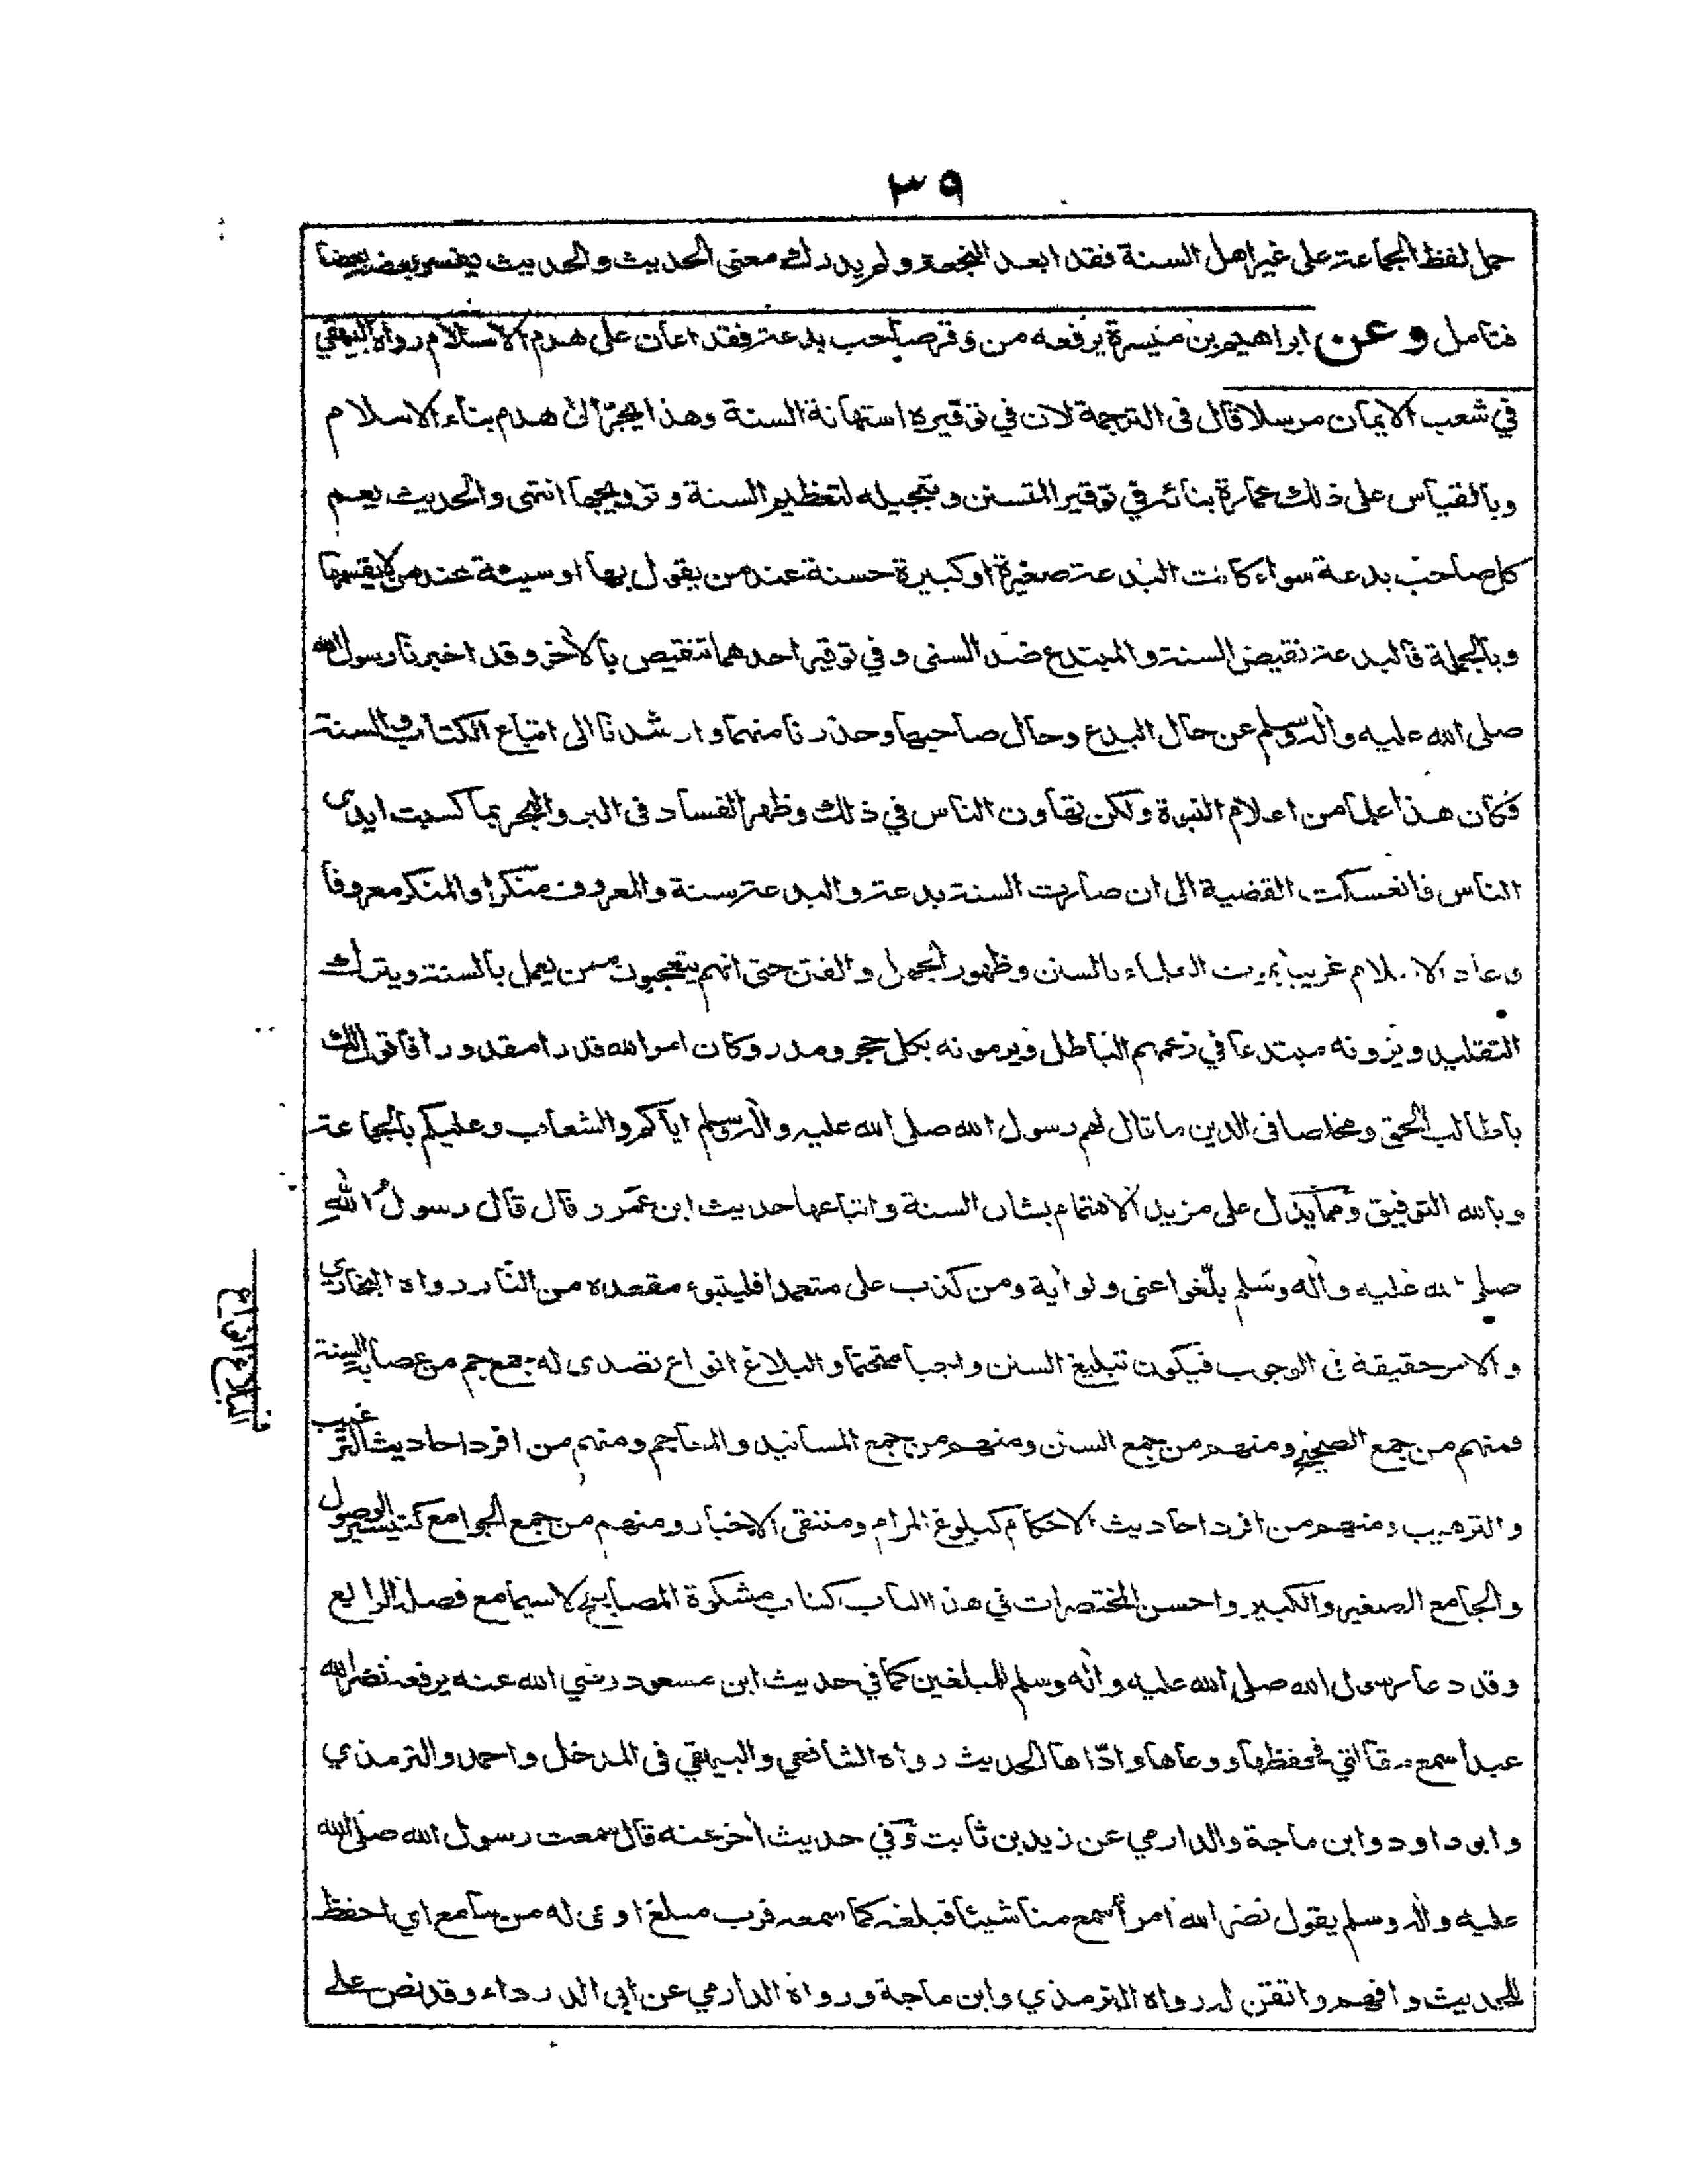 ٣٩
حمل لفظ الجماعة على غير اهل السنة فقد ابعد النجعة ولم يدرك معنى الحديث والحديث يفسر بعضه بعضا
فتامل وعن ابراهيم بن ميسرة يرفعه من وقر صاحب بدعة فقد اعان على هدم الاسلام رواه البيهقي
في شعب الايمان مرسلا قال فى الترجمة لان في توقيره استهانة السنة وهذا يجر الى هدم بناء الاسلام
وبالقياس على ذلك عمارة بنائه في توقير المتسنن وتبجيله لتعظيم السنة وترويجها انتهى والحديث يعم
كل صاحب بدعة سواء كانت البدعة صغيرة او كبيرة حسنة عند من يقول بها او سيئة عند من لا يقسمها
وبالجملة فالبدعة نقيض السنة والمبتدع ضد السنى وفي توقير احدهما تنقيص بالاخر وقد اخبرنا رسول الله
صلى الله عليه واله وسلم عن حال البدع وحال صاحبها وحذرنا منهما وارشدنا الى اتباع الكتاب والسنة
فكان هذا علما من اعلام النبوة ولكن تهاون الناس في ذلك وظهر الفساد فى البر والبحر بما كسبت ايدى
الناس فانعسكت القضية الى ان صارت السنة بدعة والبدعة سنة والمعروف منكرا والمنكر معروفا
وعاد الاسلام غريبا بموت العلماء بالسنن وظهور الجهل والفتن حتى انهم يتعجبون ممن يعمل بالسنة ويترك
التقليد ويزونه مبتدعا في زعمهم الباطل ويرمونه بكل حجر ومدر وكان امر الله قدرا مقدورا فاقول لك
ياطالب الحق ومخلصا فى الدين ما قال لهم رسول الله صلى الله عليه واله وسلم اياكم والشعاب وعليكم بالجماعة
وبالله التوفيق ومما يدل على مزيد الاهتمام بشان السنة واتباعها حديث ابن عمرو قال قال رسول الله
صلى الله عليه واله وسلم بلغوا عنى ولو اية ومن كذب على متعمدا فليتبوء مقعده من النار رواه البخاري
والامر حقيقة فى الوجوب فيكون تبليغ السنن واجبا متحتما والبلاغ انواع تصدى له جمع جم من عصابة السنة
البلاغ انواع
فمنهم من جمع الصحيح ومنهم من جمع السنن ومنهم من جمع المسانيد والمعاجم ومنهم من افرد احاديث الترغيب
والترهيب ومنهم من افرد احاديث الاحكام كبلوغ المرام ومنتقى الاخبار ومنهم من جمع الجوامع كتيسير الوصول
والجامع الصغير والكبير واحسن المختصرات في هذا الباب كتاب مشكوة المصابيح لاسيما مع فصله الرابع
وقد دعا رسول الله صلى الله عليه واله وسلم للمبلغين كما في حديث ابن مسعود رضي الله عنه يرفعه نضر الله
عبدا سمع مقالتي فحفظها ووعاها واداها الحديث رواه الشافعي والبيهقي فى المدخل واحمد والترمذي
وابو داود وابن ماجة والدارمي عن زيد بن ثابت وفي حديث اخر عنه قال سمعت رسول الله صلى الله
عليه واله وسلم يقول نضر الله امرأ سمع منا شيئا فبلغه كما سمعه فرب مبلغ اوعى له من سامع اي احفظ
للحديث وافهم واتقن له رواه الترمذي وابن ماجة ورواه الدارمي عن ابى الدرداء وقد نص على